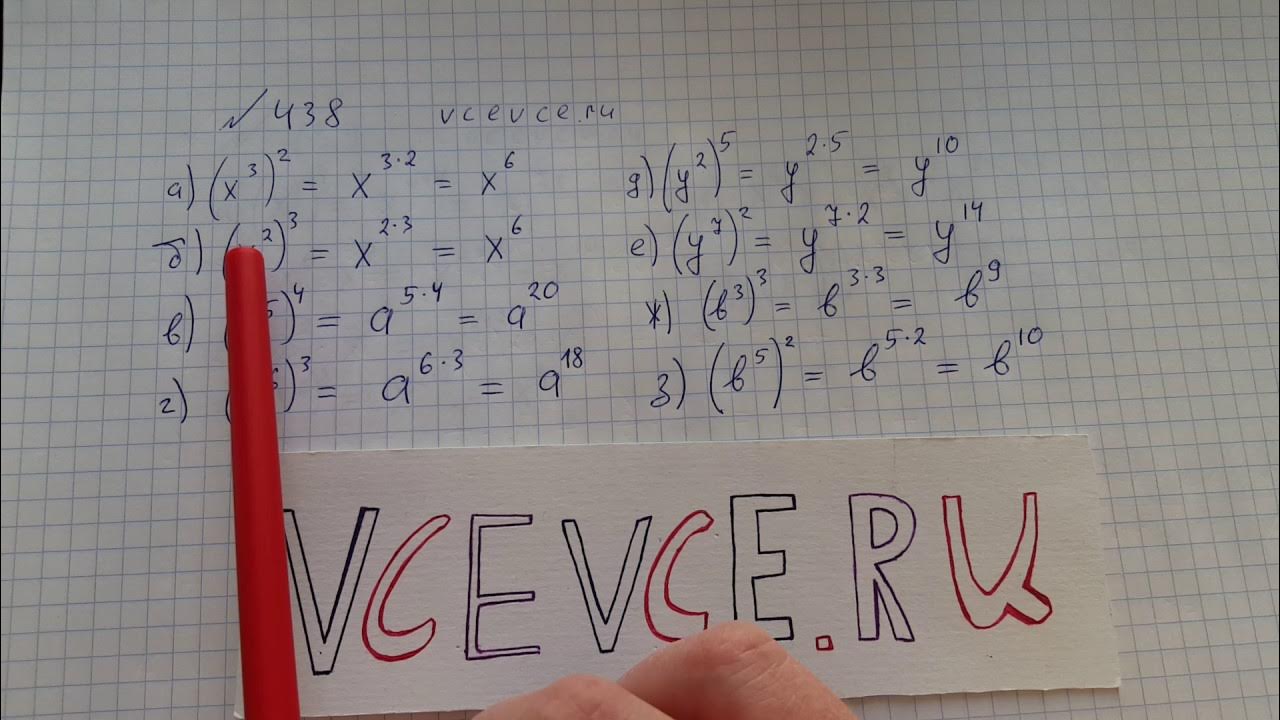 № 438 vcevce.ru
а) (x³)² = x³·² = x⁶
б) ( ²)³ = x²·³ = x⁶
в) ( ⁵)⁴ = a⁵·⁴ = a²⁰
г) ( ⁶)³ = a⁶·³ = a¹⁸
д) (y²)⁵ = y²·⁵ = y¹⁰
е) (y⁷)² = y⁷·² = y¹⁴
ж) (b³)³ = b³·³ = b⁹
з) (b⁵)² = b⁵·² = b¹⁰
VCEVCE.RU